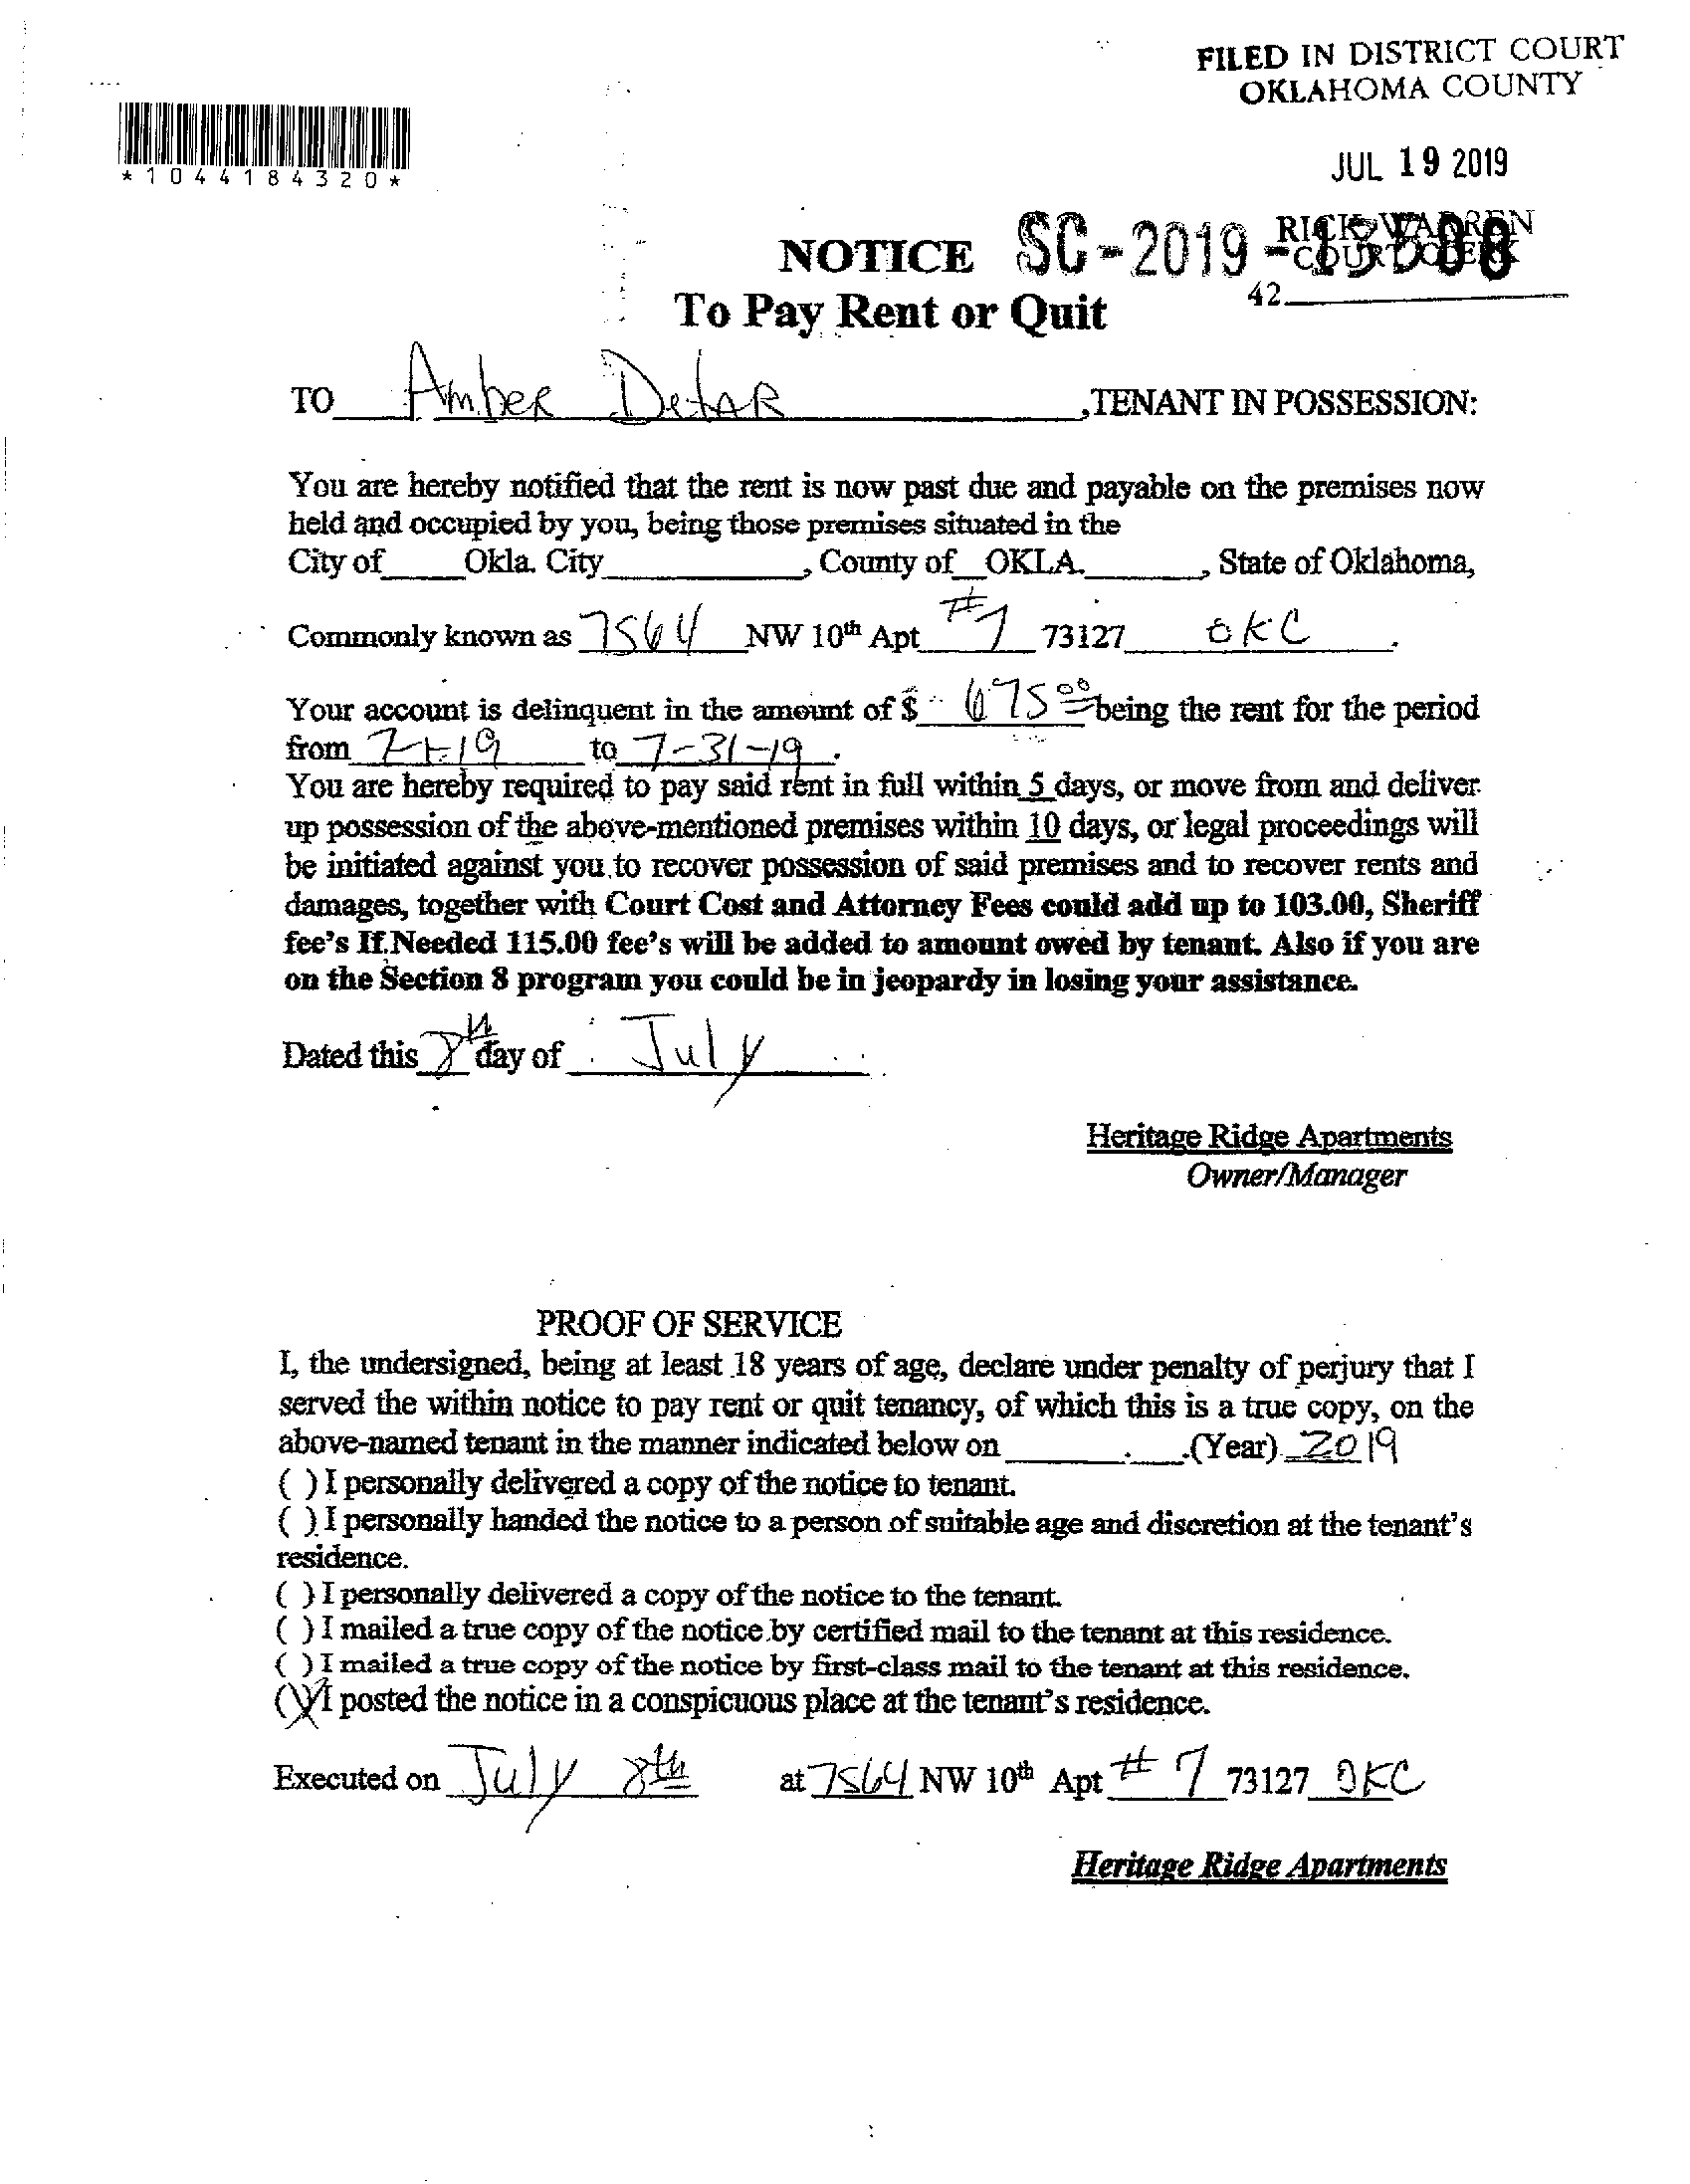 FILED IN DISTRICT COURT
OKLAHOMA COUNTY
*1044184320*
JUL 19 2019
RICK WARREN
COURT CLERK
NOTICE SC-2019-
42
To Pay Rent or Quit
TO Amber Detar ,TENANT IN POSSESSION:
You are hereby notified that the rent is now past due and payable on the premises now
held and occupied by you, being those premises situated in the
City of Okla. City, County of OKLA., State of Oklahoma,
Commonly known as 7564 NW 10th Apt #7 73127 OKC.
Your account is delinquent in the amount of $ 675 00 being the rent for the period
from 7-1-19 to 7-31-19.
You are hereby required to pay said rent in full within 5 days, or move from and deliver
up possession of the above-mentioned premises within 10 days, or legal proceedings will
be initiated against you to recover possession of said premises and to recover rents and
damages, together with Court Cost and Attorney Fees could add up to 103.00, Sheriff
fee's If Needed 115.00 fee's will be added to amount owed by tenant. Also if you are
on the Section 8 program you could be in jeopardy in losing your assistance.
Dated this 8th day of July
Heritage Ridge Apartments
Owner/Manager
PROOF OF SERVICE
I, the undersigned, being at least 18 years of age, declare under penalty of perjury that I
served the within notice to pay rent or quit tenancy, of which this is a true copy, on the
above-named tenant in the manner indicated below on (Year) 2019
( ) I personally delivered a copy of the notice to tenant.
( ) I personally handed the notice to a person of suitable age and discretion at the tenant's
residence.
( ) I personally delivered a copy of the notice to the tenant.
( ) I mailed a true copy of the notice by certified mail to the tenant at this residence.
( ) I mailed a true copy of the notice by first-class mail to the tenant at this residence.
(X) I posted the notice in a conspicuous place at the tenant's residence.
Executed on July 8th at 7564 NW 10th Apt # 7 73127 OKC
Heritage Ridge Apartments